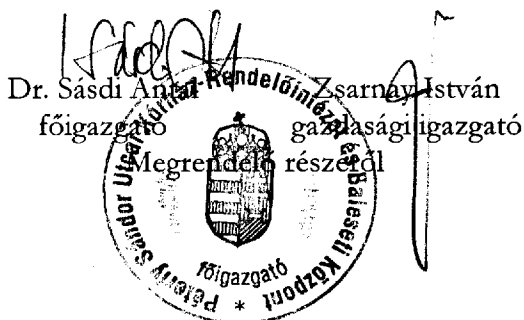 Dr. Sásdi Antal Zsarnay István
főigazgató gazdasági igazgató
Megrendelő részéről
Péterfy Sándor Utcai Kórház-Rendelőintézet és Baleseti Központ
főigazgató
*